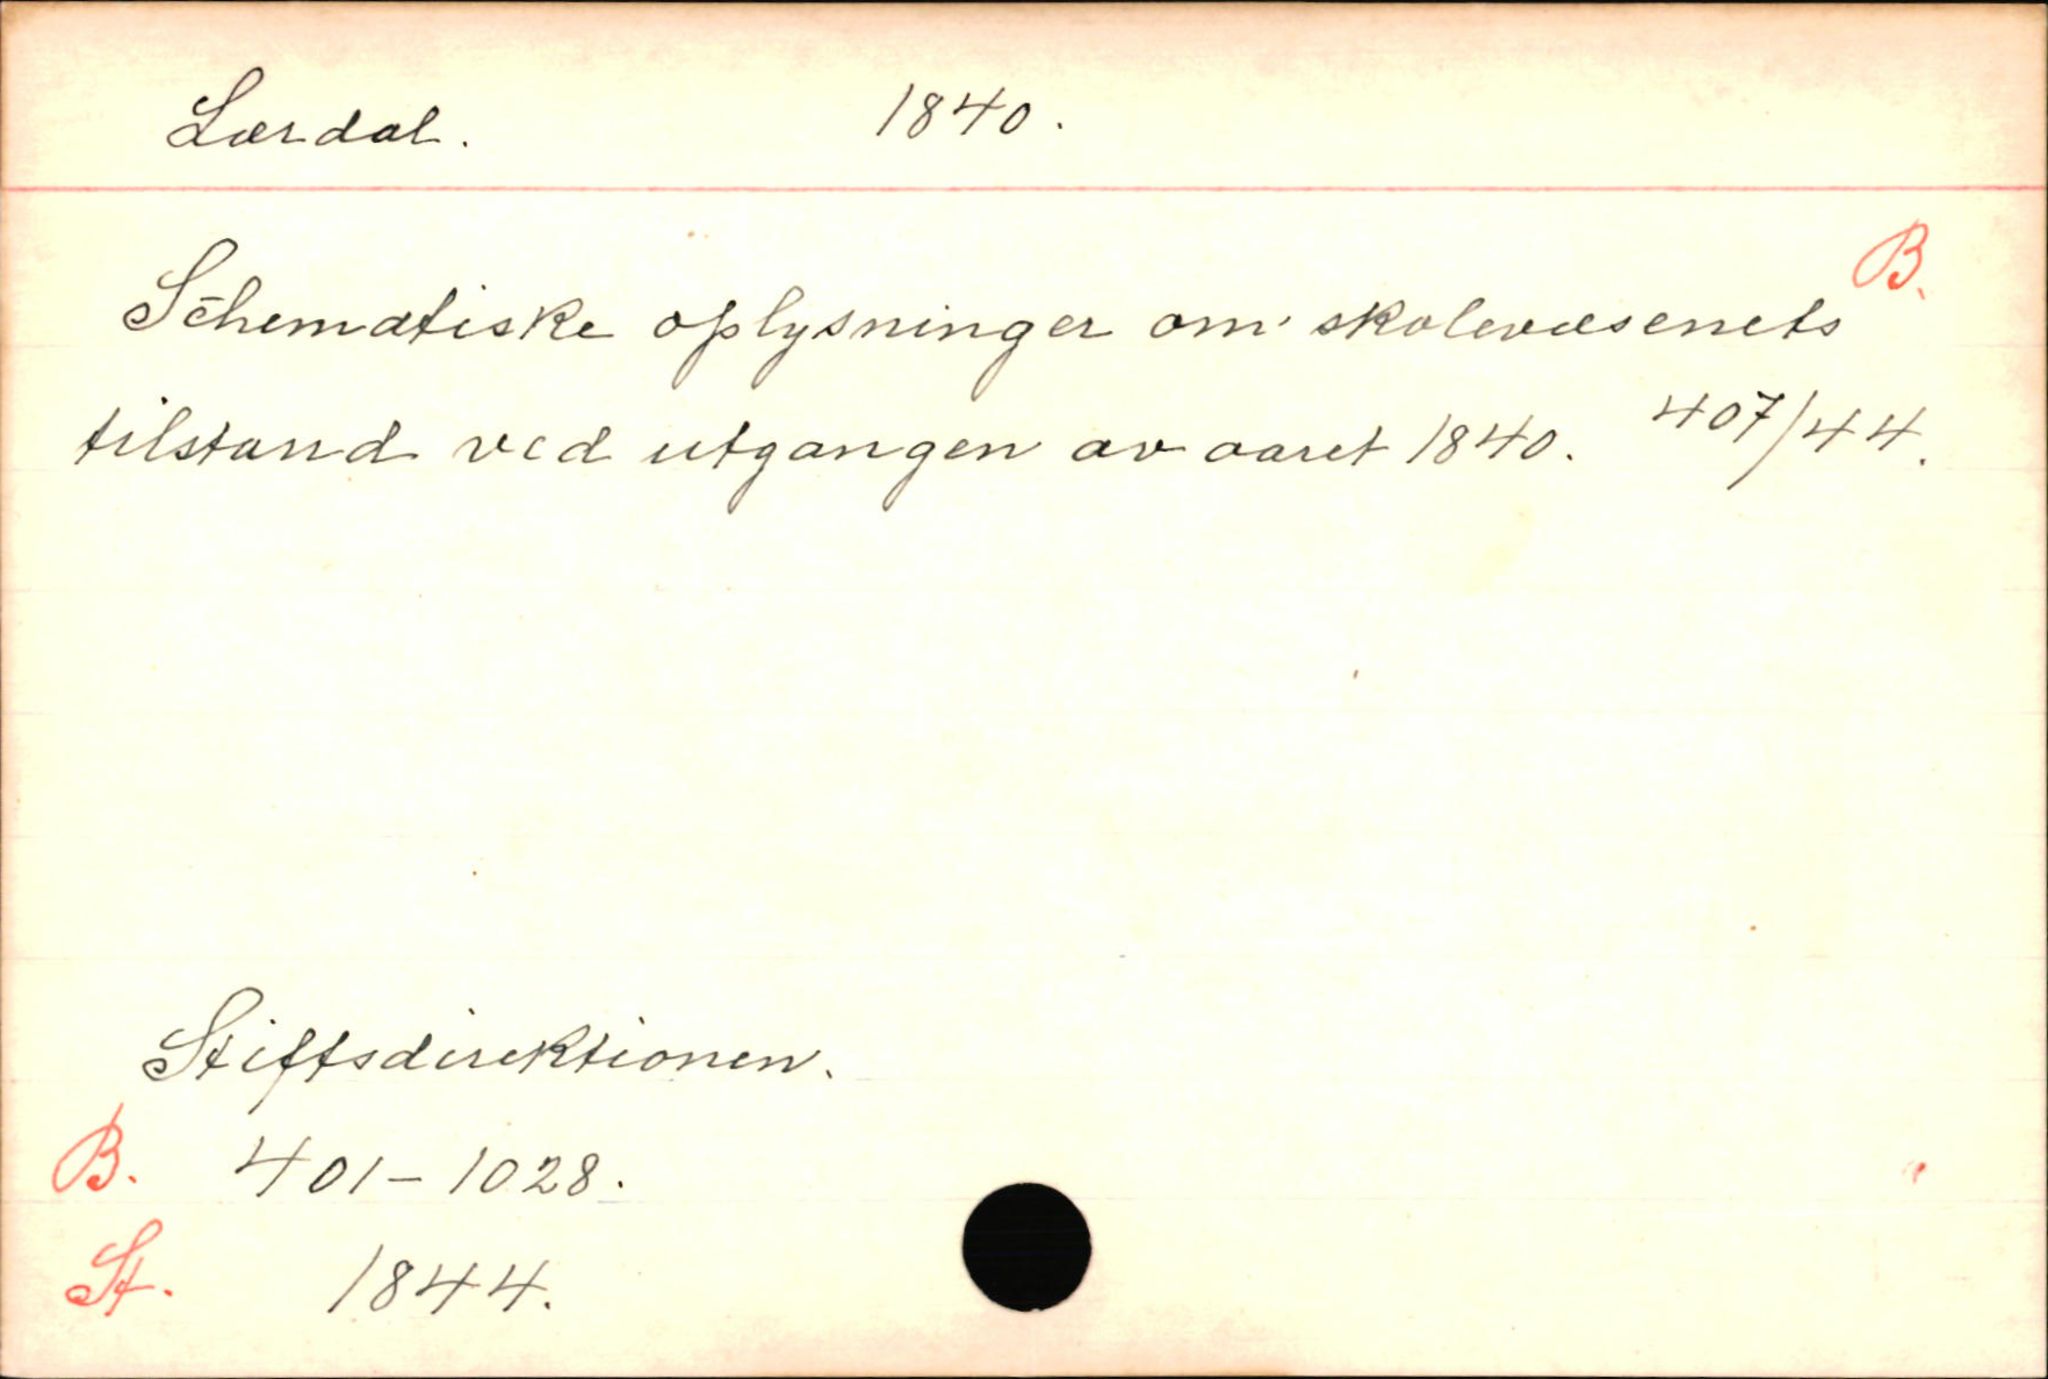 Lærdal. 1840.
B.
Schematiske oplysninger om skolevæsenets
tilstand ved utgangen av aaret 1840. 407/44.
Stiftsdirektionen.
B. 401-1028.
St. 1844.